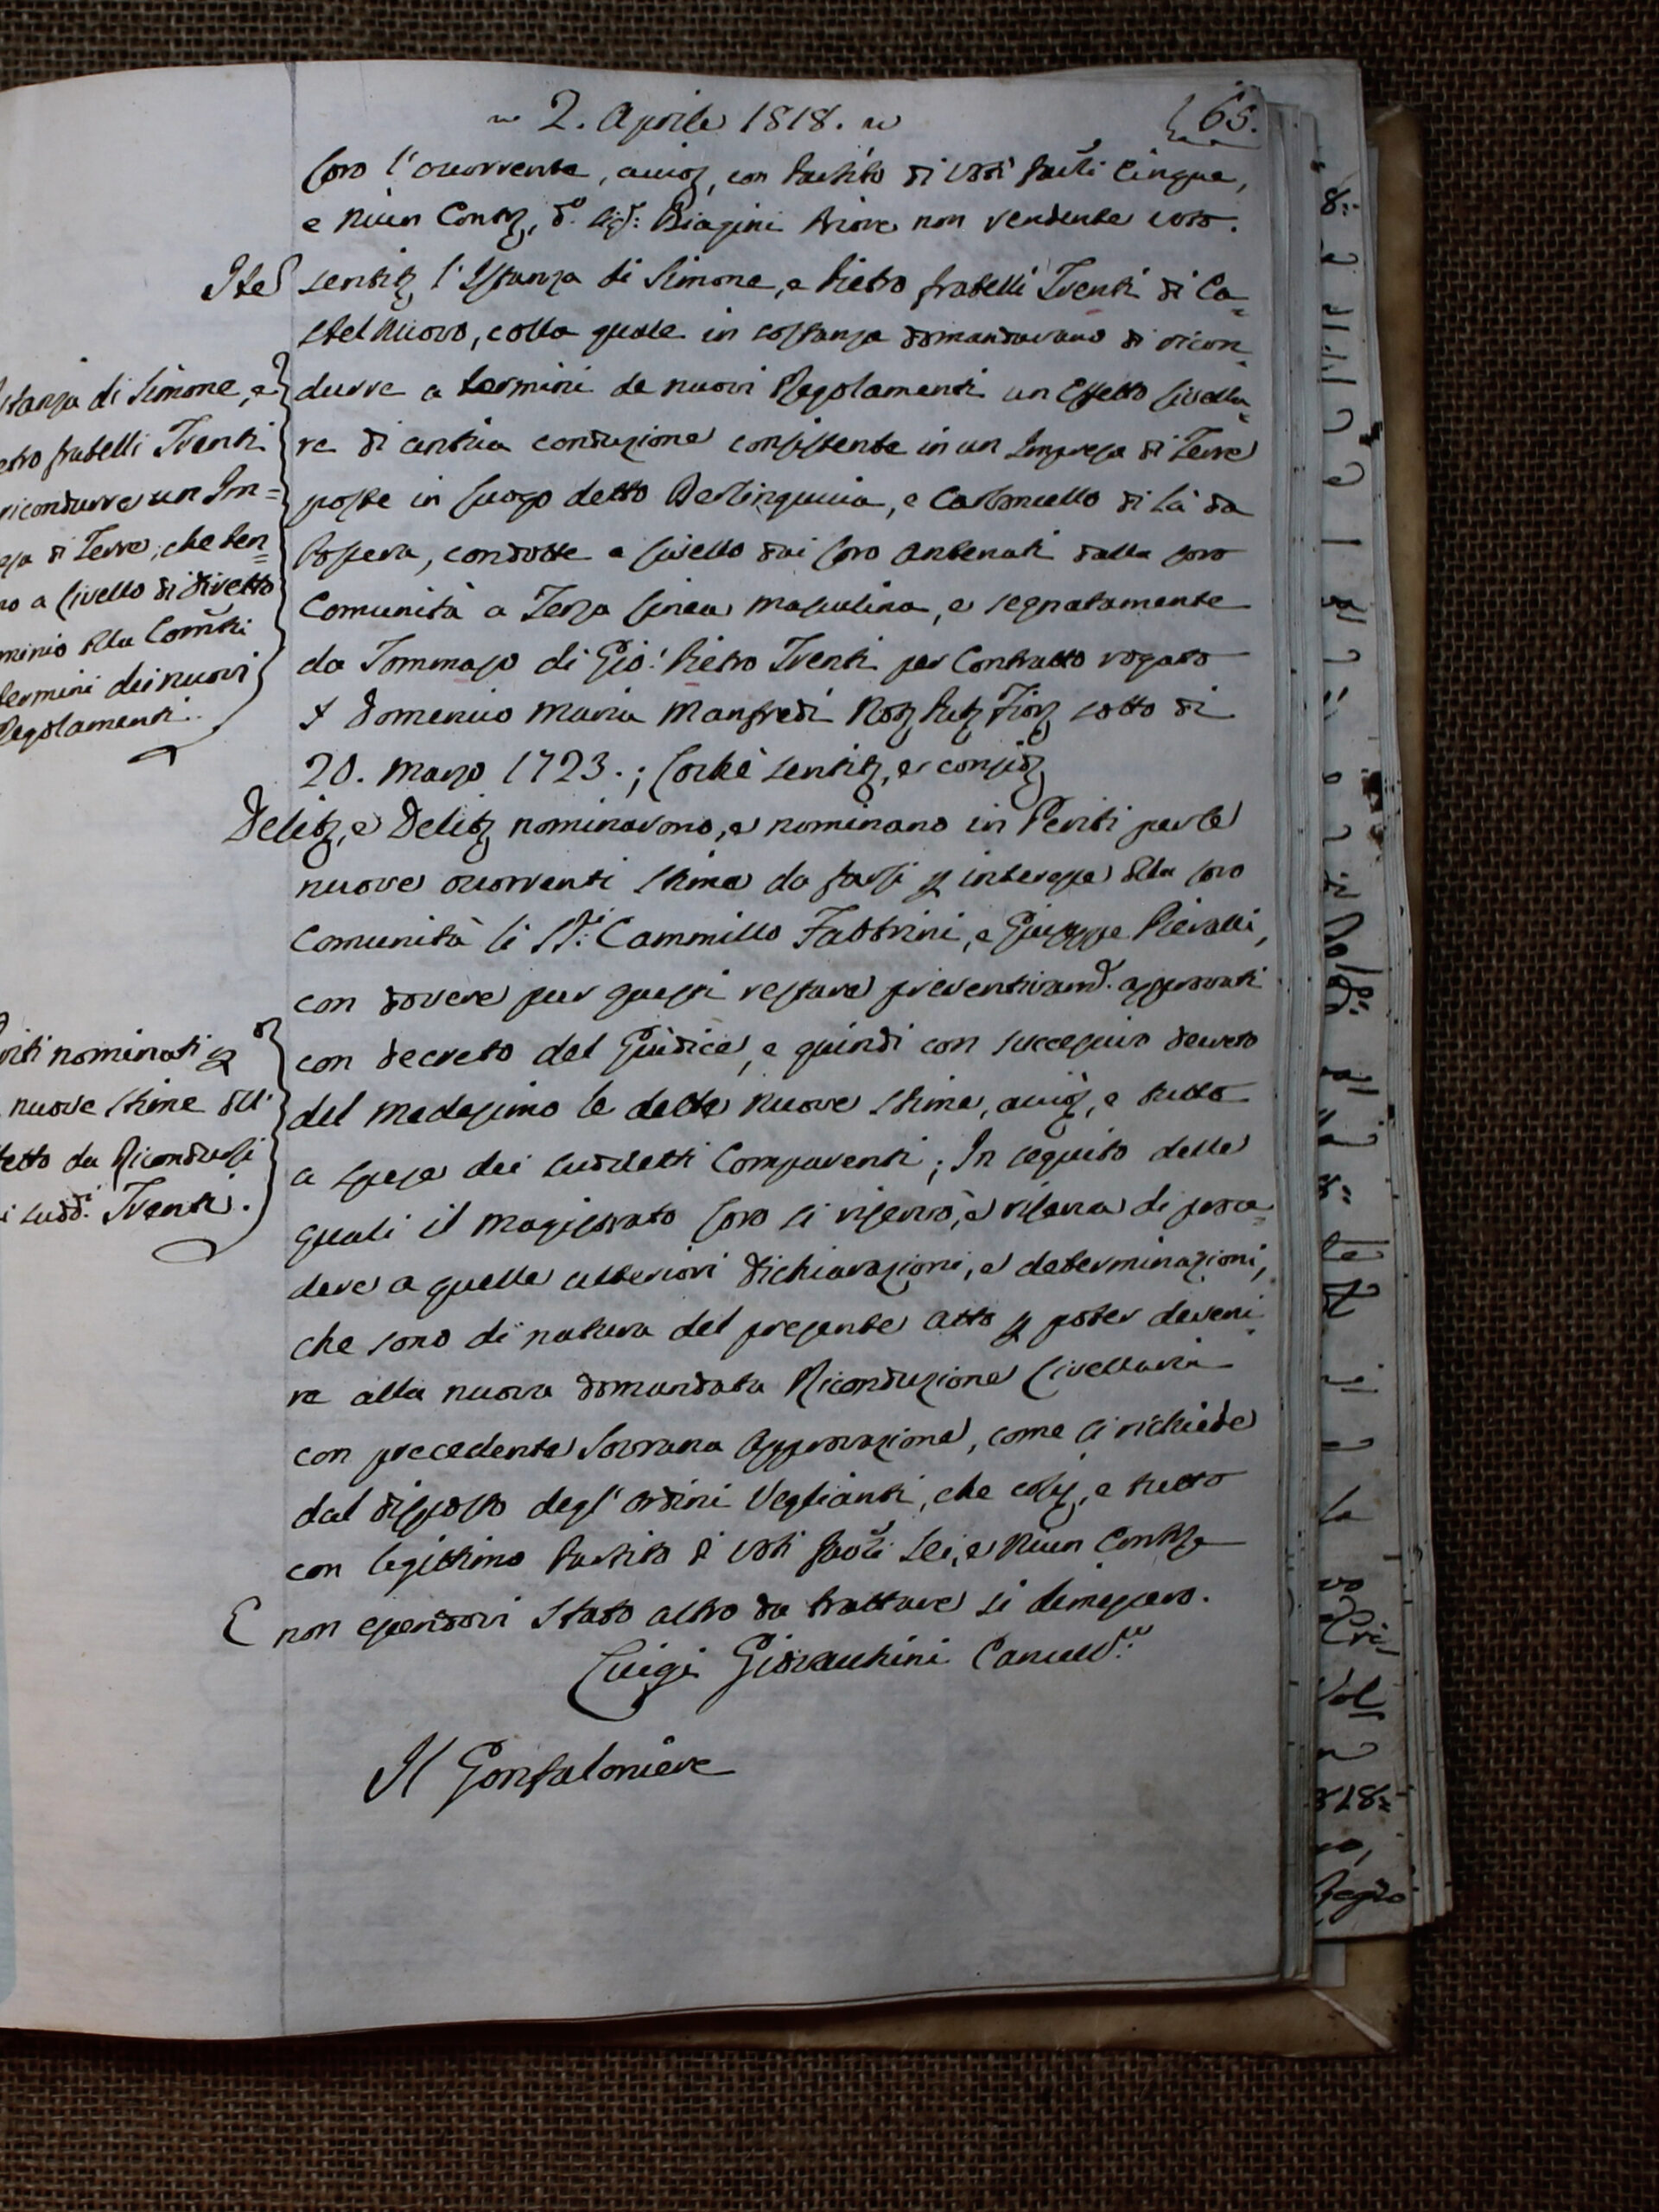 2. Aprile 1818.
65.
loro l'occorrente, con Partito di Voti favli Cinque,
e niun Cont, d.o Sig.r Biagini Priore non rendente voto.
Ite
sentit l'Istanza di Simone, e Pietro fratelli Iventi di Ca=
stelnuovo, colla quale in sostanza domandavano di ricon
durre a termini de nuovi Regolamenti un Effetto livella=
re di antica conduzione consistente in un Impresa di Terre
poste in luogo detto e di là da
Possera, condotte a livello dai loro Antenati dalla loro
Comunità a Terza linea masculina, e segnatamente
da Tommaso di Gio: Pietro Iventi per Contratto rogato
Domenico Maria Manfredi Not Pub Fior sotto di
20. Marzo 1723.; Lochè sentit, e consid
Delib, e Delib nominarono, e nominano in Periti per le
nuove occorrenti stime da farsi p interesse della loro
Comunità li S.ri Cammillo Fabbrini, e Giuseppe Pieralli,
con dovere pur questi restare preventivam.e approvati
con decreto del Giudice, e quindi con successivo decreto
del medesimo le dette nuove stime, e tutto
a spese dei suddetti Comparenti; In seguito delle
quali il Magistrato loro si riservò, e riserva di proce=
dere a quelle ulteriori dichiarazioni, e determinazioni,
che sono di natura del presente atto p poter deveni
re alla nuova domandata Riconduzione livellaria
con precedente Sovrana Approvazione, come si richiede
dal disposto degl'ordini Veglianti, che così, e tutto
con legittimo Partito di Voti favli Sei, e Niun Cont
E non essendovi stato altro da trattare si dimessero.
Luigi Giovacchini Cancell.re
Il Gonfaloniere
stanza di Simone, e
etro fratelli Iventi
ricondurre un Im=
esa di Terre, che ten=
no a livello di diretto
minio della Comtà
termini dei nuovi
Regolamenti.
riti nominati p
nuove stime dell'
fetto da Ricondursi
i sudd.i Iventi.